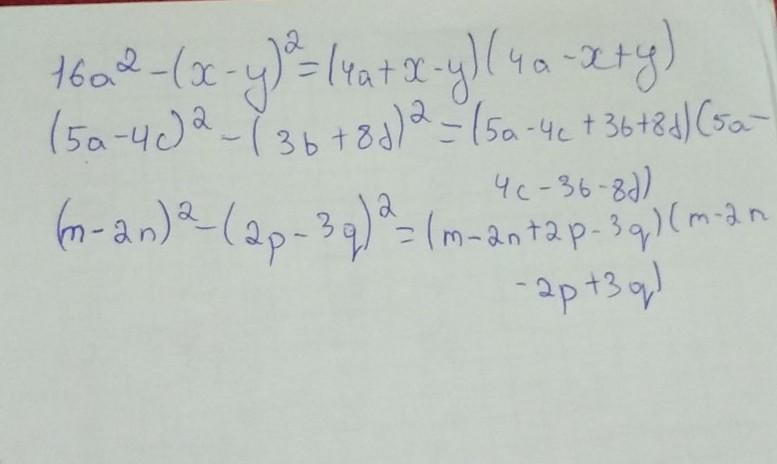 16a² - (x - y)² = (4a + x - y)(4a - x + y)
(5a - 4c)² - (3b + 8d)² = (5a - 4c + 3b + 8d)(5a -
4c - 3b - 8d)
(m - 2n)² - (2p - 3q)² = (m - 2n + 2p - 3q)(m - 2n
- 2p + 3q)